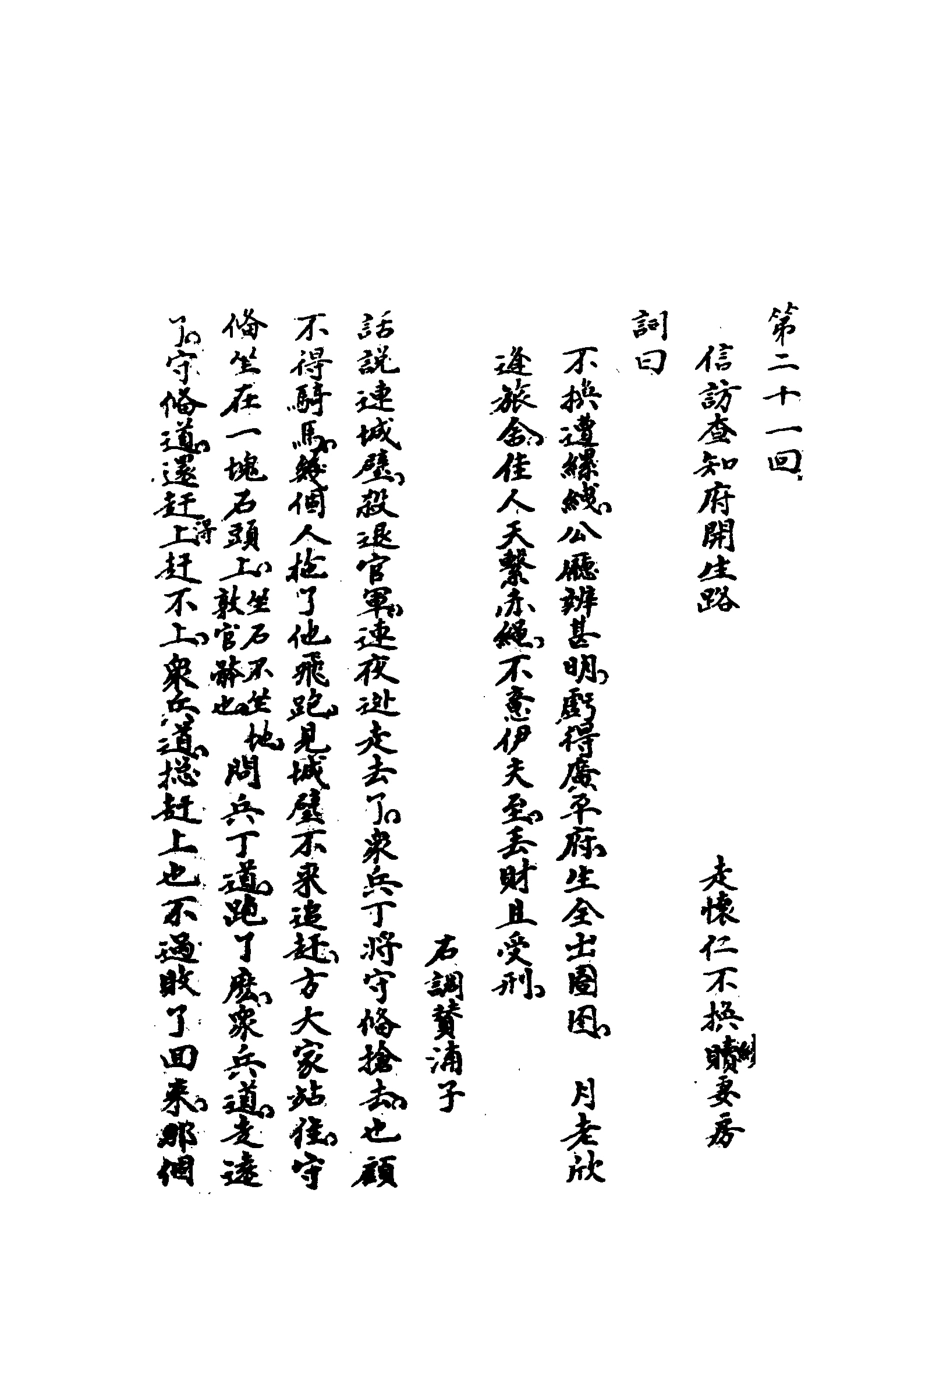 第二十一回
信訪查知府開生路　走懷仁不換續妻房
詞曰
不換遭縲絏公廳辨甚明虧得廣平府生全出囹圄　月老欣
逢旅舍佳人天繫赤繩不意伊夫至丟財且受刑
右調贊浦子
話說連城璧殺退官軍連夜逃走去了衆兵丁將守俻搶去也顧
不得騎馬幾個人拖了他飛跑見城璧不来追赶方大家站住守
俻坐在一塊石頭上坐石不坐地敦官骵也問兵丁道跑了麽衆兵道走遠
了守俻道還赶上得赶不上衆兵道總赶上也不過敗了回来那個